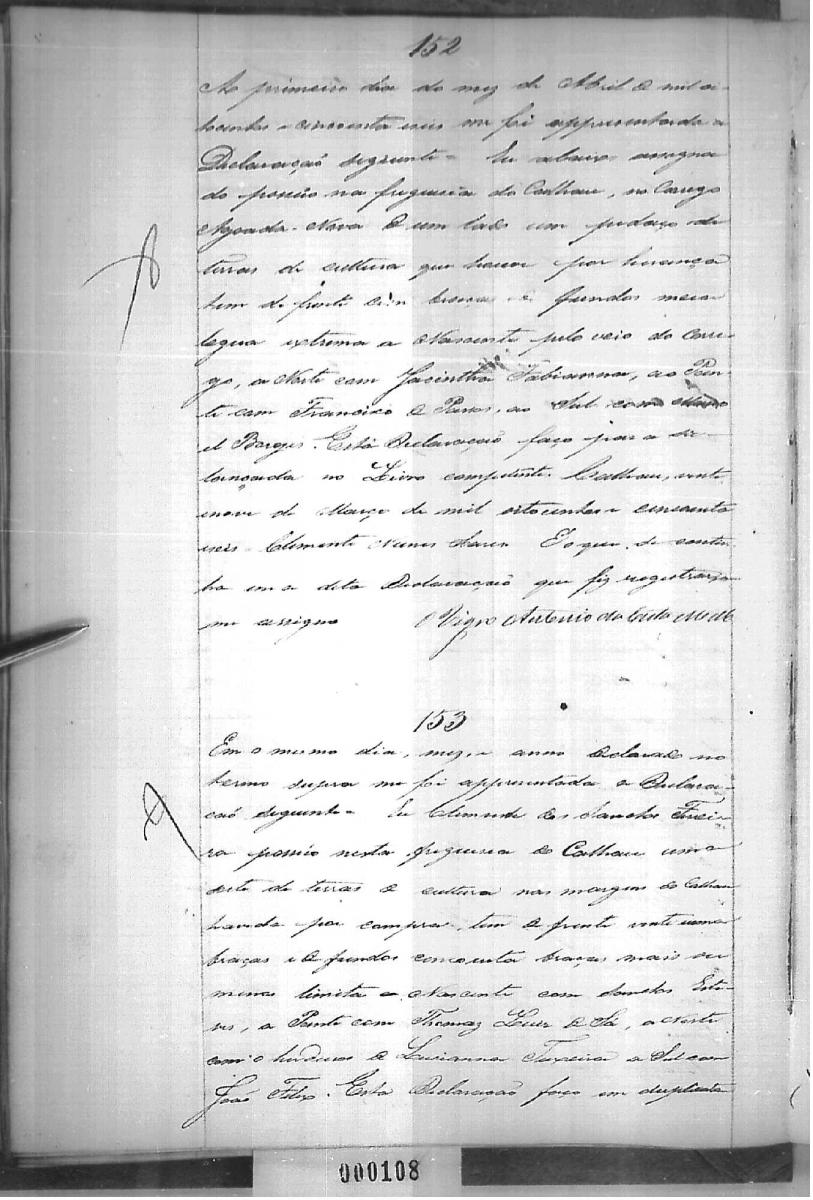 152
Ao primeiro dia do mez de Abril de mil oi-
tocentos e cincoenta e seis me foi appresentada a
Declaração seguinte - Eu abaixo assigna
do possúo na freguesia do Calhau, no Corrego
Agoada Nova de um lado um pedaço de
terras de cultura que houve por herança
tem de frente cem braças e de fundos meia
legua extrema a Nascente pelo veio do Corre-
go, a Norte com Jacintha Fabianna, ao Poen-
te com Francisco de Passos, ao Sul com Mano
el Borges. Esta Declaração faço para ser
lançada no Livro competente. Calhau, vinte
e nove de Março de mil oitocentos e cincoenta
e seis - Clemente Nunes E o que se conti-
nha em a dita Declaração que fiz registrar e
me assigno O Vigro Antonio da Costa
153
Em o mesmo dia, mez e anno declarado no
termo supra me foi appresentada a Declara-
ção seguinte - Eu Clemente dos Sanctos Ferrei-
ra possúo nesta freguesia do Calhau uma
sorte de terras de cultura nas margens do Calhau
havida por compra, tem de frente vinte uma
braças e de fundos cincoenta braças mais ou
menos limita a Nascente com Sanctos Este-
ves, a Poente com Thomaz Luiz de Sá, a Norte
com o herdeiros de Lusianna Teixeira a Sul com
João Felix. Esta Declaração faço em duplicata
000108